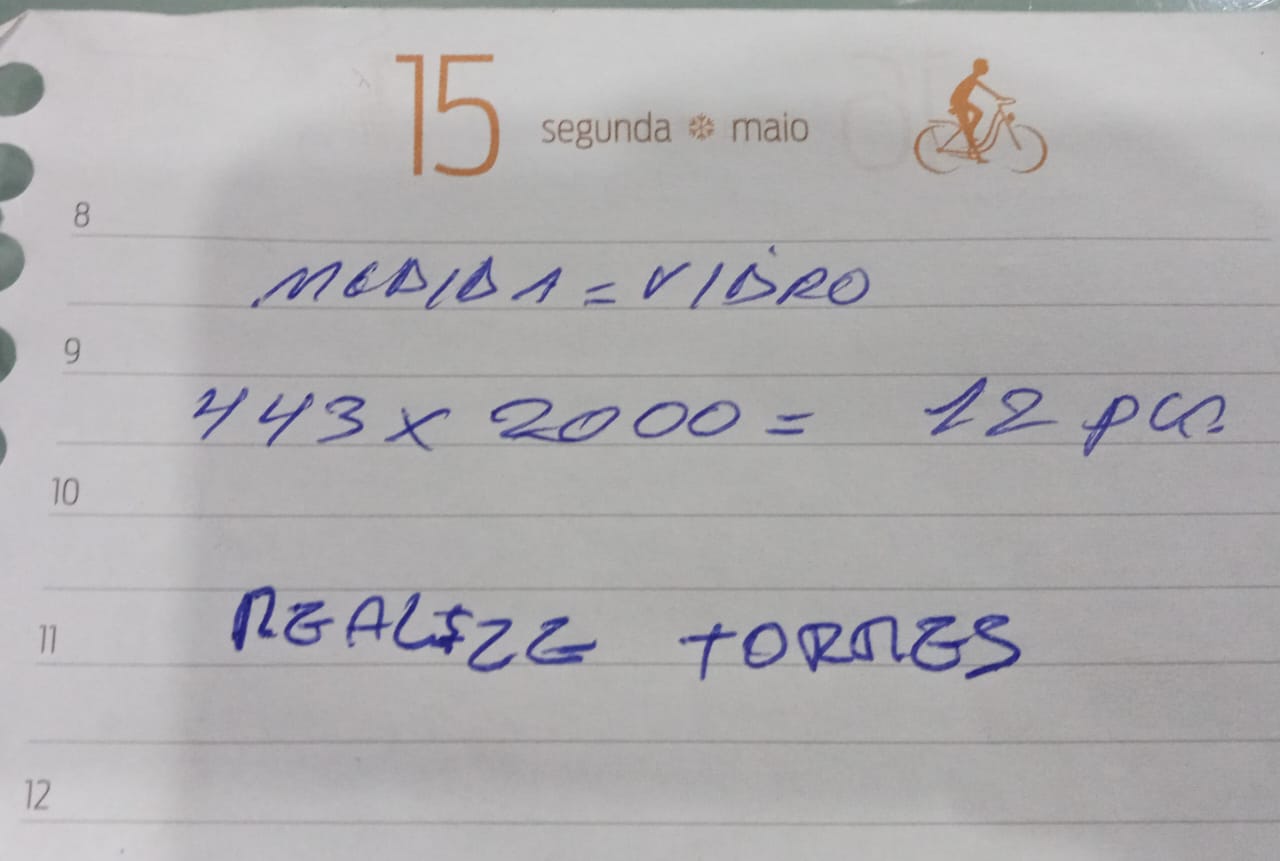 15 segunda maio
8
MEDIDA = VIDRO
9
443 x 2000 = 12 pçs
10
11 REALIZE TORRES
12